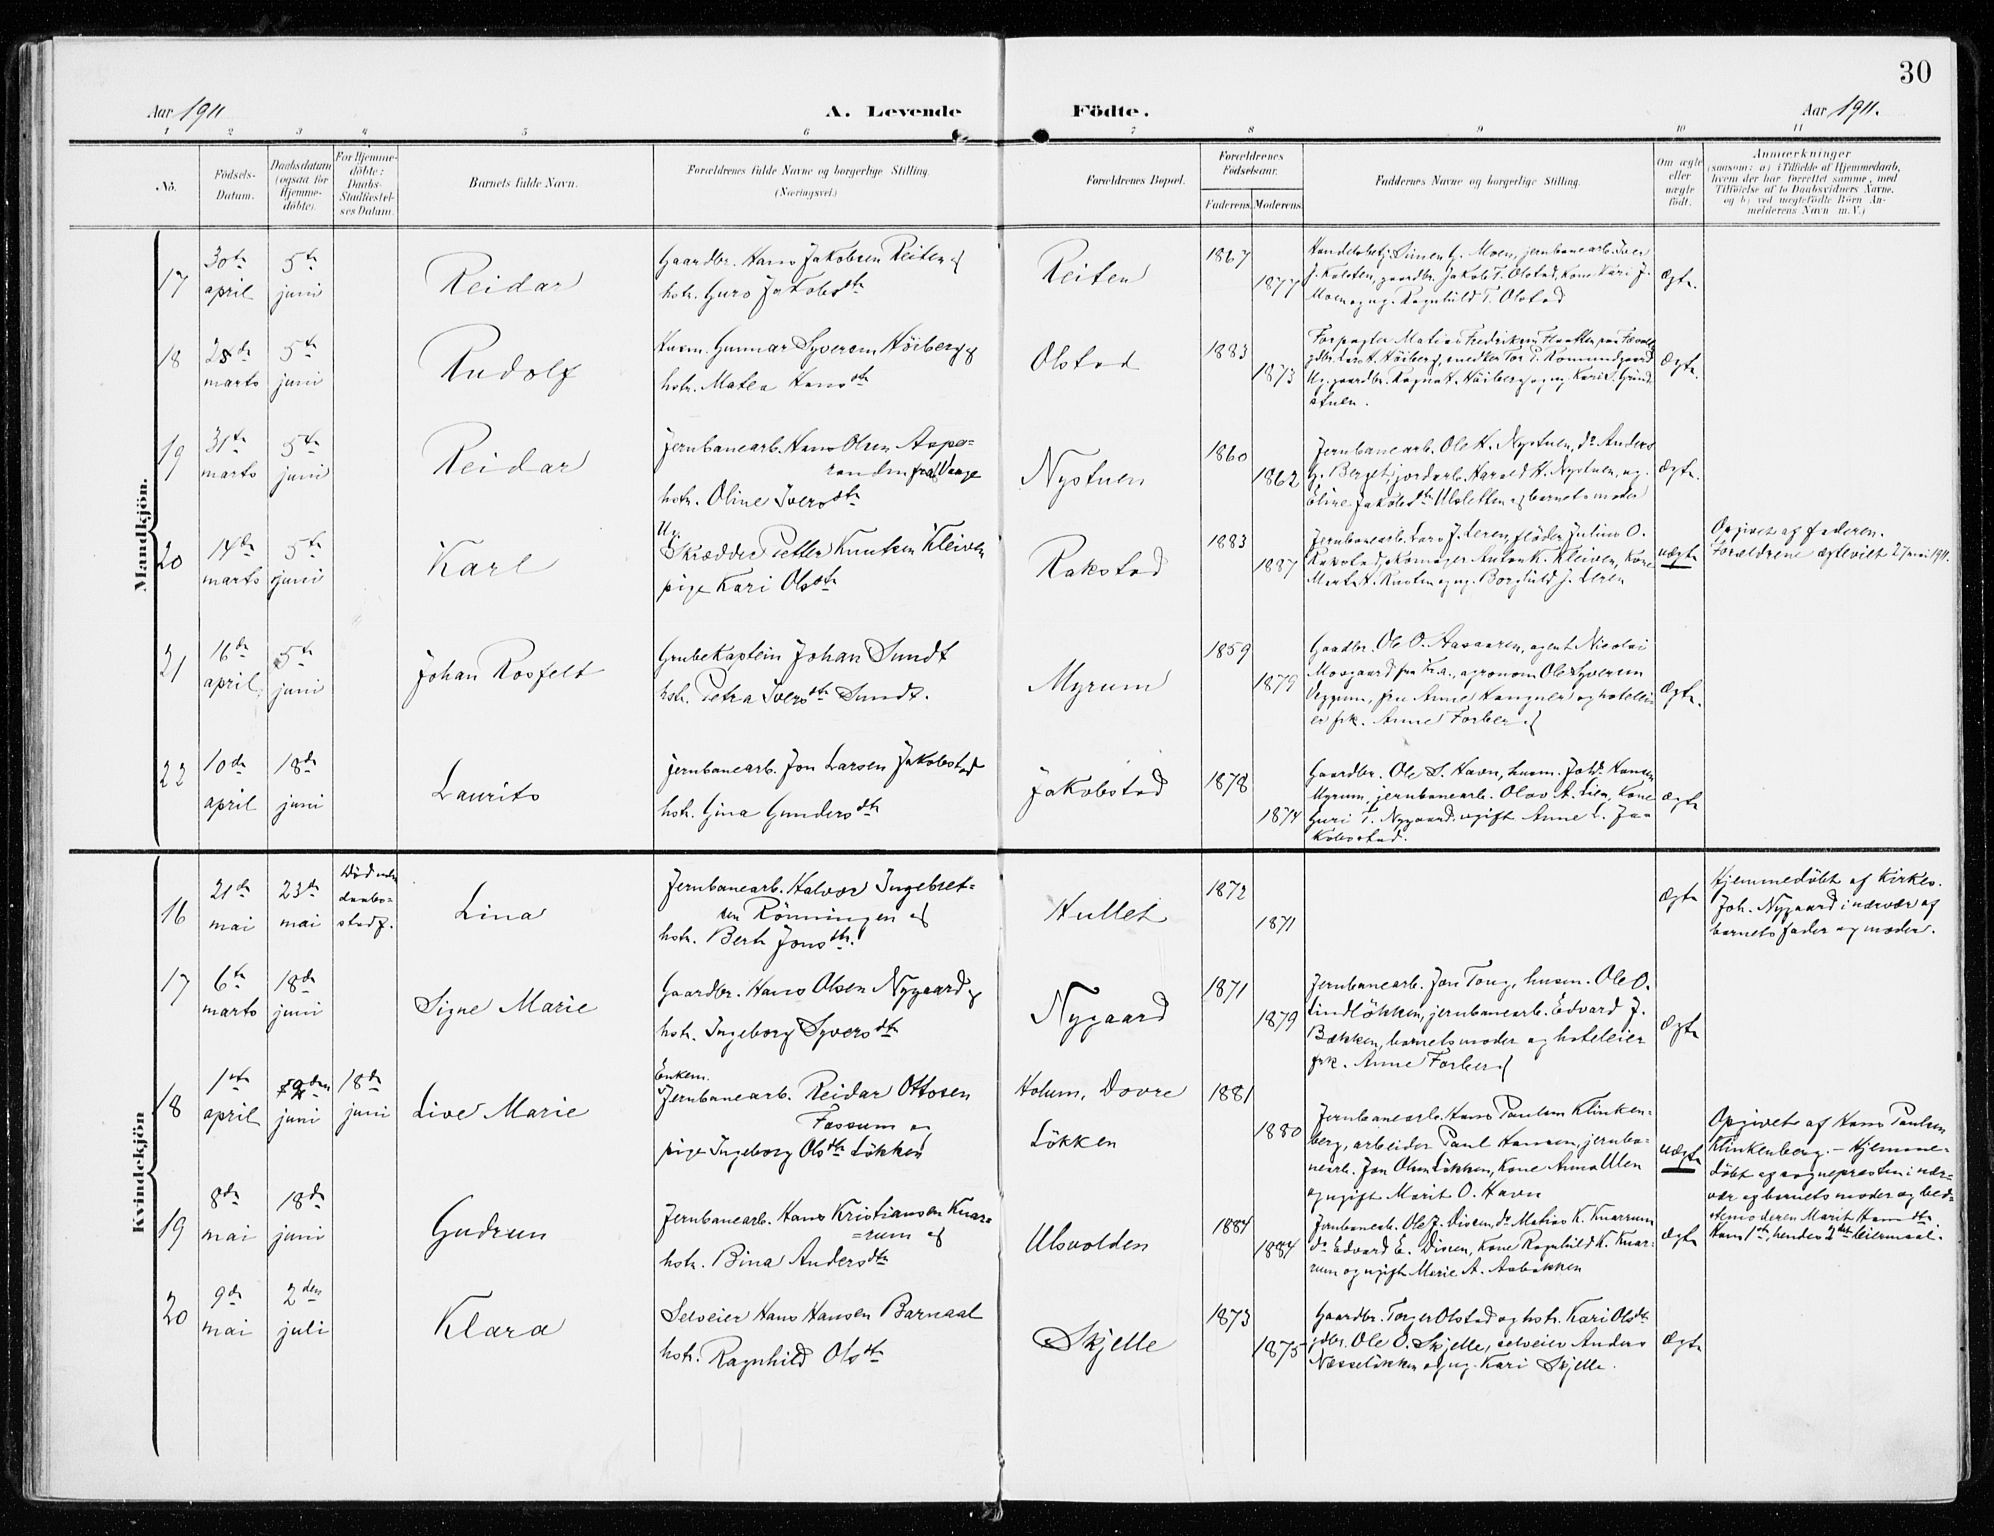 30
Aar 1911
A. Levende
Födte.
Aar 1911.
1 2 3 4 5 6 7 8 9 10 11
No.
Födsels-
Datum.
Daabsdatum
(ogsaa for
Hjemme-
döbte).
For Hjemme-
döbte:
Daabs-
Stadfæstel-
ses Datum.
Barnets fulde Navn.
Forældrenes fulde Navne og borgerlige Stilling.
(Næringsvei.)
Forældrenes Bopæl.
Forældrenes
Födselsaar.
Faderens. Moderens.
Faddernes Navne og borgerlige Stilling.
Om ægte
eller
uægte
födt.
Anmærkninger
(saasom: a) i Tilfælde af Hjemmedaab,
hvem der har forrettet samme, med
Tilföielse af to Daabsvidners Navne.
og b) ved uægtefödte Börn An-
melderens Navn m. V.)
Mandkjön.
17
30te april
5te juni
Reidar
Gaardbr. Hans Jakobsen Reiten og
hstr. Guro Jakobsdtr
Reiten
1867
1877
Handelsbetj. Simen G. Moen, jernbanearb. Iver
J. Kolsten, gaardbr. Jakob T. Olstad, kone Kari J.
Moen og ug. Ragnhild T. Olstad
Ægte.
18
28de marts
5te juni
Rudolf
Husm. Gunnar Syversen Höiberg og
hstr. Matea Hansdtr
Olstad
1883
1873
Forpagter Matias Fredriksen
Höiberg, smedker Tor P. Romundgaard
Ug. gaardbr. Ragna Höiberg og ug. Kari S. Grind-
stuen.
Ægte.
19
31te marts
5te juni
Reidar
Jernbanearb. Hans Olsen Aspe-
randen fra Vaage
hstr. Oline Iversdtr
Nystuen
1860
1862
Jernbanearb. Ole H. Nystuen, do Anders
G. Berget, jordarb. Harald H. Nystuen, ug.
Eline Jakobsdtr Ulsletten og barnets moder
Ægte.
20
14de marts
5te juni
Karl
Ug.
Skrædder Petter Knutsen Kleiven
pige Kari Olsdtr
Rakstad
1883
1887
Jernbanearb. Lars J. Leren, flöder Julius O.
Rakstad, skomager Anton K. Kleiven, Kone
Marit Rusten og ug. Borghild J. Leren
uægte
Opgivet af faderen.
Forældrene ægteviet 27 mai 1911.
21
16de april
5te juni
Johan Rosfelt
Grubekaptein Johan Sundt
hstr. Petra Iversdtr Sundt.
Myrum
1859
1879
Gaadbr. Ole O. Aasaaren, agent Nicolai
Mosgaard fra Kra., agronom Ole Syversen
Veggum, fru Anne Hangner og hotelei-
er frk. Anne Forberg
Ægte.
22
10de april
18de juni
Laurits
jernbanearb. Jon Larsen Jakobstad
hstr. Gina Gundersdtr
Jakobstad
1878
1874
Gaardbr. Ole S. Havn, husm. Johs. Hansen
Myrum, jernbanearb. Olav A. Lien, Kone
Guri T. Nygaard, ugift Anne L. Ja-
kobsstad.
Ægte
Kvindekjön
16
21de mai
23de mai
Död uden
daabs-
stadf.
Lina
Jernbanearb. Halvor Ingebret-
sen Rönningen og
hstr. Berit Jonsdtr.
Hullet
1872
1871
Ægte
Hjemmedöbt af Kirkes.
Joh. Nygaard i nærvær af
barnets fader og moder.
17
6te marts
18de juni
Signe Marie
Gaardbr. Hans Olsen Nygaard og
hstr. Ingeborg Syversdtr
Nygaard
1871
1879
Jernbanearb. Jon Tong, husm. Ole O.
Lindlökken, jernbanearb. Edvard J.
Bækken, barnets moder og hoteleier
frk. Anne Forberg
Ægte
18
1ste april
juni
18de juni
Live Marie
Enkem.
Jernbanearb. Reidar Ottosen
Fossum og
pige Ingeborg Olsdtr Lökken
Holum, Dovre
Lökken
1881
1880
Jernbanearb. Hans Paulsen Klinken-
berg, arbeider Paul Hansen, jernba-
nearb. Jon Olsen Lökken, Kone Anna Ulen
og ugift Marit O. Havn
uægte
Opgivet af Hans Paulsen
Klinkenberg. – Hjemme-
döbt af sognepresten i nær-
vær af barnets moder og bed-
stemoderen Marit Hansdtr.
Hans 1ste, hendes 2det leiermaal.
19
8de mai
18de juni
Gudrun
Jernbanearb. Hans Kristiansen Knar-
rum og
hstr. Bina Andersdtr
Ulsvolden
1884
1884
Jernbanearb. Ole J. Disen, do Matias K. Knarrum
do Edvard E. Disen, Kone Ragnhild K. Knar-
rum og ugift Marie A. Aabakken
Ægte
20
9de mai
2den juli
Klara
Selveier Hans Hansen Barnaal
hstr. Ragnhild Olsdtr
Skjelle
1873
1875
Gaardbr. Torger Olstad og hstr. Kari Olsdtr
gdbr. Ole O. Skjelle, selveier Anders
Næsselökken og ug. Kari Skjelle.
Ægte